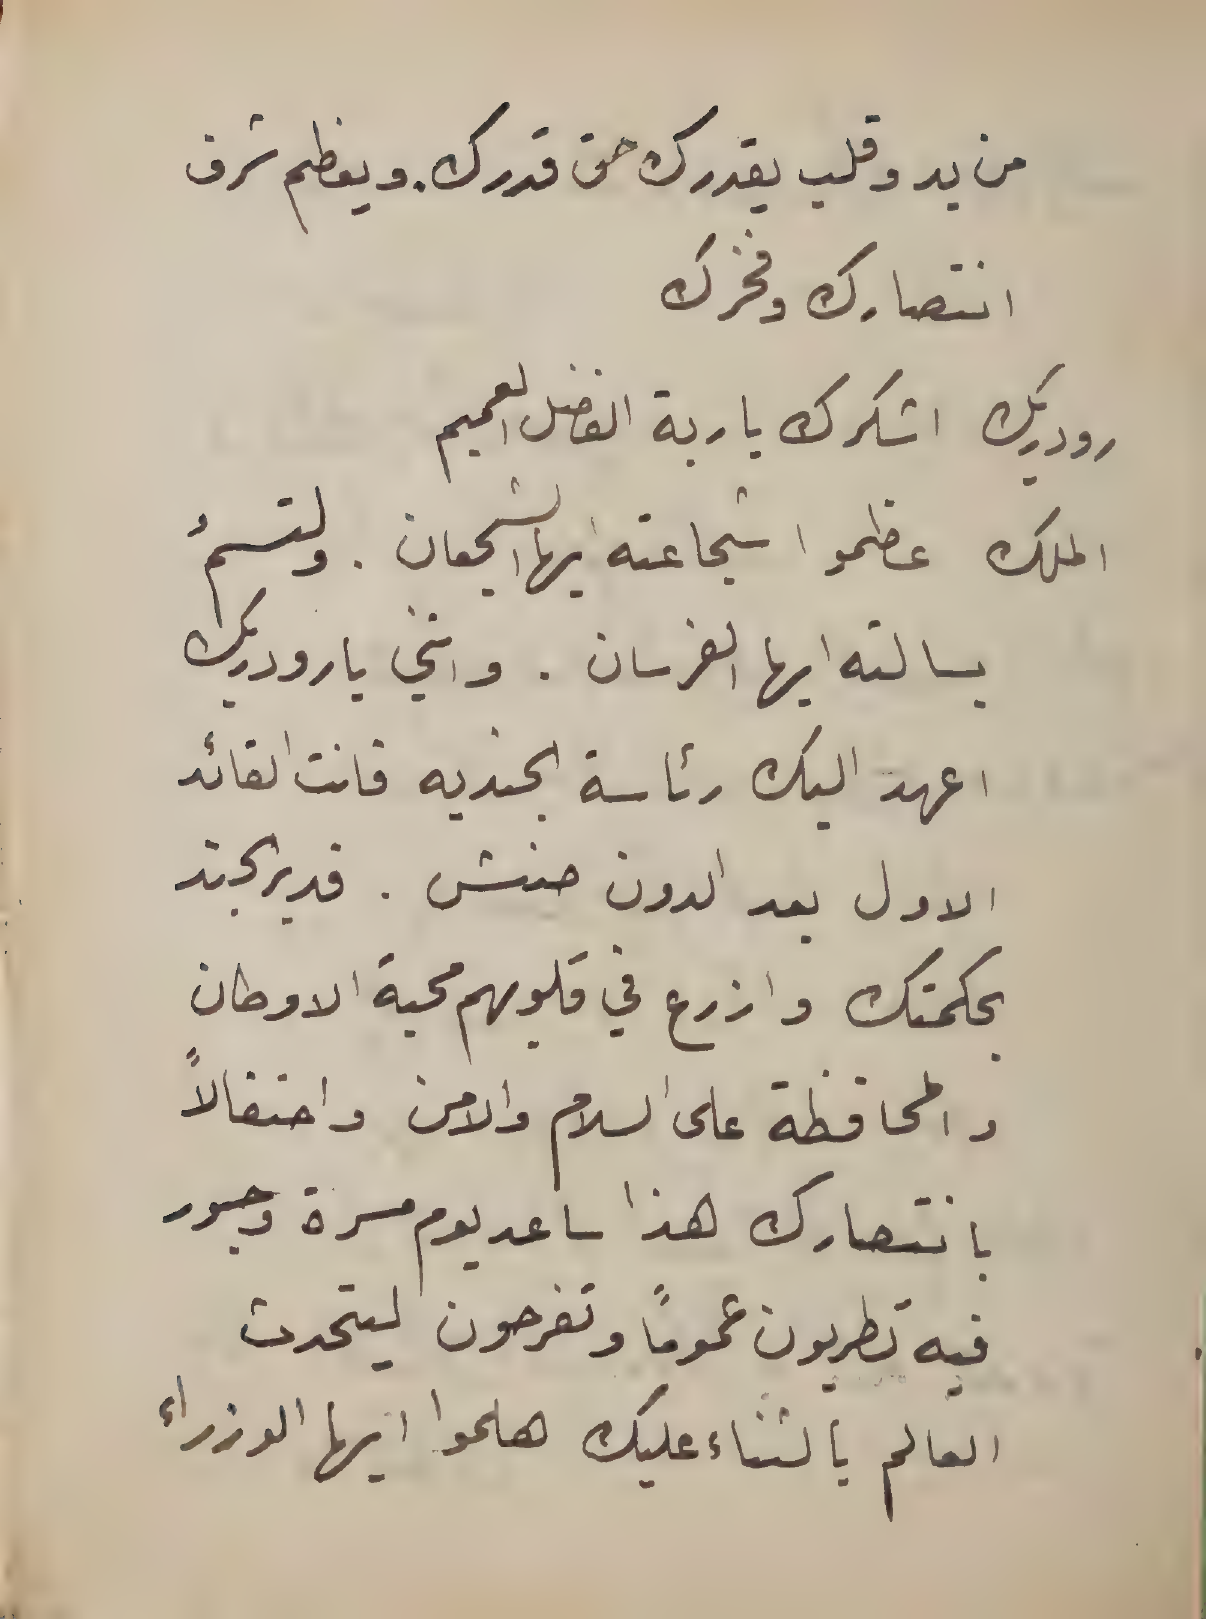 من يد وقلب يقدرك حق قدرك. ويعظم شرف
انتصارك وفخرك
رودريك اشكرك ياربة الفضل العميم
الملك عظموا شجاعته ايها الشجعان . ولتسمُ
بسالته ايها الفرسان . وانني يارودريك
اعهد اليك رئاسة الجنديه فانت القائد
الاول بعد الدون صنش . فدير الجند
بحكمتك وازرع في قلوبهم محبة الاوطان
والمحافظة على السلام والامن واحتفالاً
بانتصارك هذا ساعد يوم مسرة وحبور
فيه تطربون عموماً وتفرحون ليتحدث
العالم بالثناء عليك هلموا ايها الوزراء